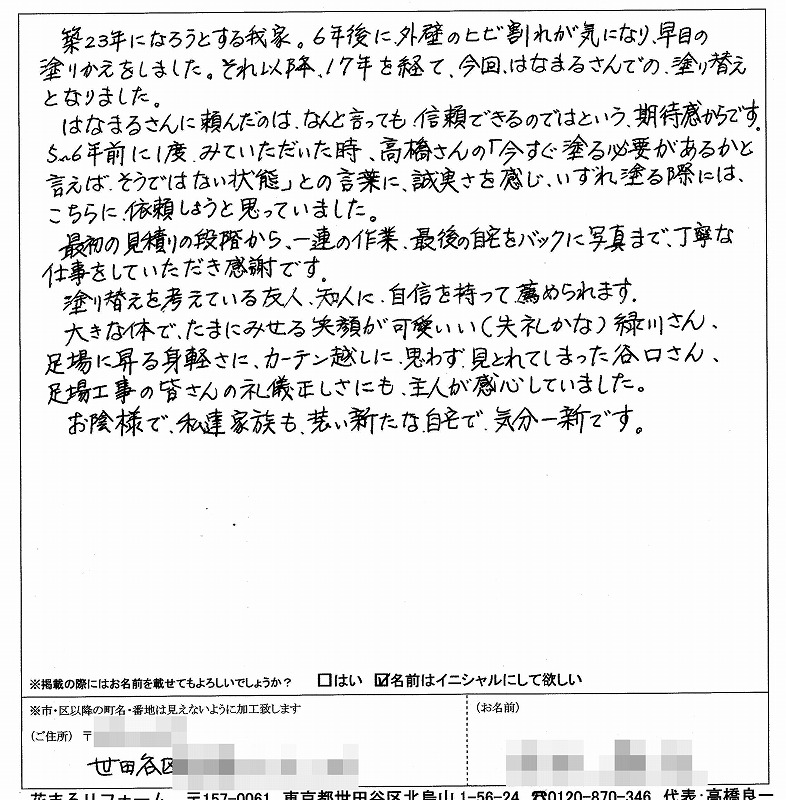 築23年になろうとする我家。6年後に、外壁のヒビ割れが気になり、早目の
塗りかえをしました。それ以降、17年を経て、今回、はなまるさんでの、塗り替え
となりました。
はなまるさんに頼んだのは、なんと言っても、信頼できるのではという、期待感からです。
5~6年前に1度、みていただいた時、高橋さんの「今すぐ塗る必要があるかと
言えば、そうではない状態」との言葉に、誠実さを感じ、いずれ塗る際には、
こちらに、依頼しようと思っていました。
最初の見積りの段階から、一連の作業、最後の自宅をバックに写真まで、丁寧な
仕事をしていただき感謝です。
塗り替えを考えている友人、知人に、自信を持って薦められます。
大きな体で、たまにみせる笑顔が可愛いい(失礼かな)緑川さん、
足場に昇る身軽さに、カーテン越しに、思わず、見とれてしまった谷口さん、
足場工事の皆さんの礼儀正しさにも、主人が感心していました。
お陰様で、私達家族も、装い新たな自宅で、気分一新です。
※掲載の際にはお名前を載せてもよろしいでしょうか? □はい ☑名前はイニシャルにして欲しい
※市・区以降の町名・番地は見えないように加工致します
(お名前)
(ご住所) 〒
世田谷区
花まるリフォーム 〒157-0061 東京都世田谷区北烏山1-56-24 ☎0120-870-346 代表:高橋良一